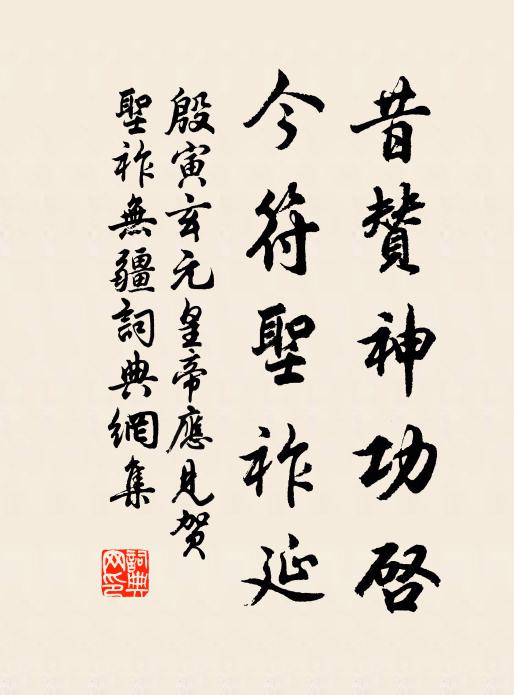 昔贊神功啓
今符聖祚延
殷寅玄元皇帝應見賀
聖祚無疆詞典網集
詞典网印